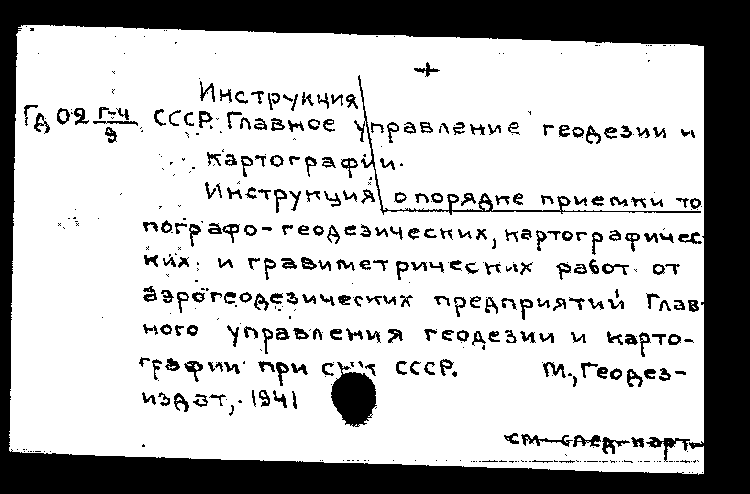 +
Инструкция
Гд 02 Г-4 СССР. Главное управление геодезии и
9
картографии.
Инструкция о порядке приемки то
пографо-геодезических, картографичес
ких и гравиметрических работ от
аэрогеодезических предприятий Глав
ного управления геодезии и карто-
графии при СНК СССР. М., Геодез-
издат, 1941
см след карт